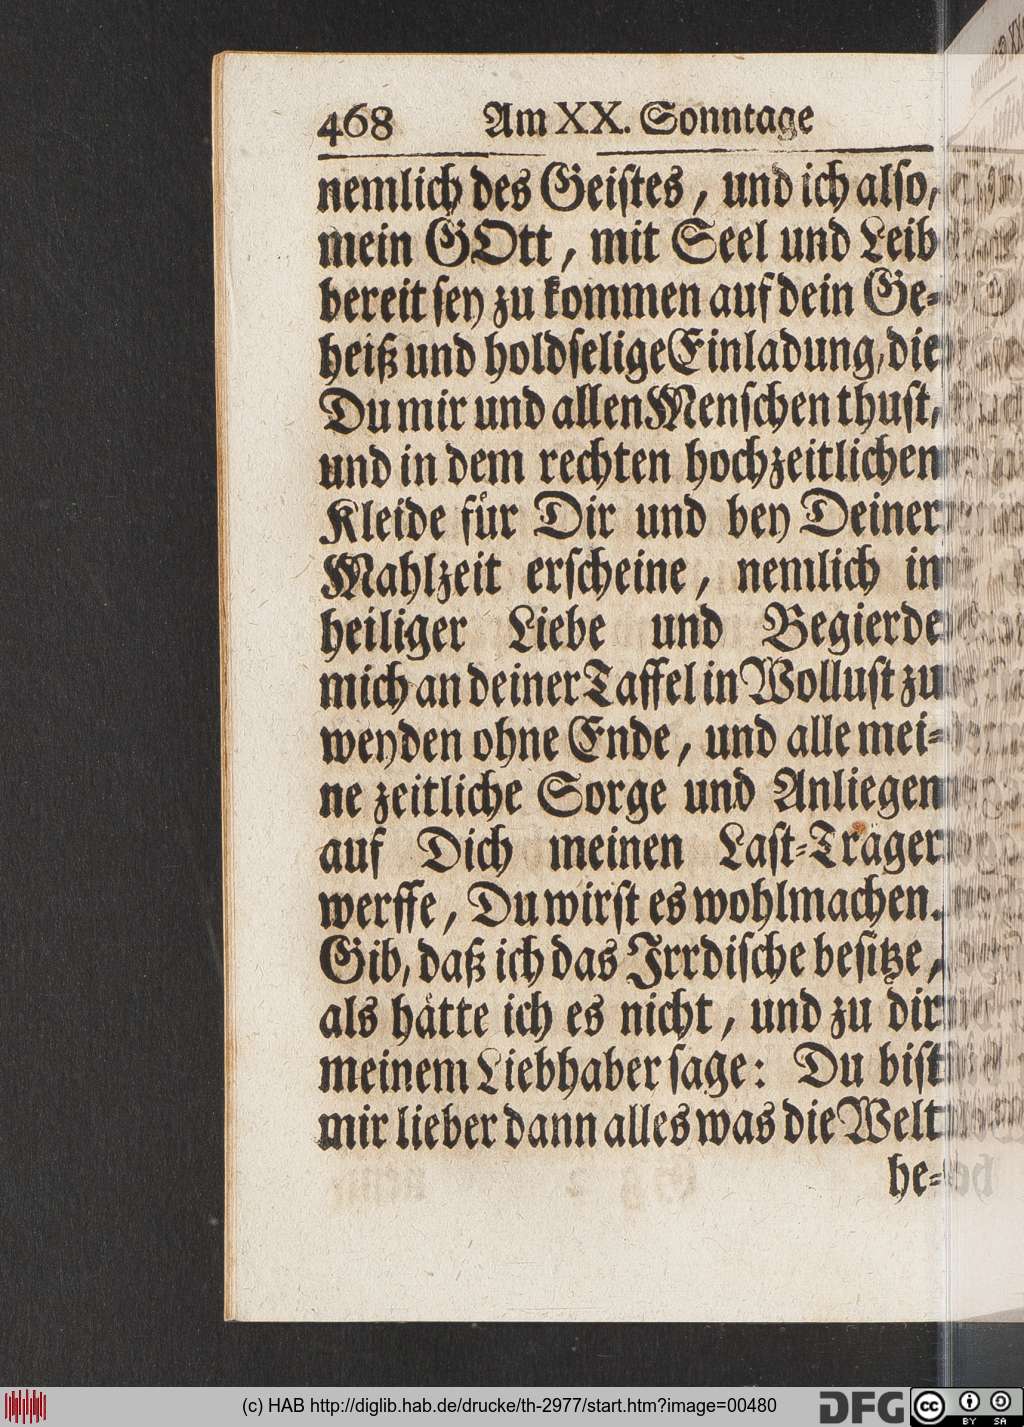 468 Am XX. Sonntage
nemlich des Geistes, und ich also,
mein GOtt, mit Seel und Leib
bereit sey zu kommen auf dein Ge-
heiß und holdselige Einladung, die
Du mir und allen Menschen thust,
und in dem rechten hochzeitlichen
Kleide für Dir und bey Deiner
Mahlzeit erscheine, nemlich in
heiliger Liebe und Begierde
mich an deiner Taffel in Wollust zu
weyden ohne Ende, und alle mei-
ne zeitliche Sorge und Anliegen
auf Dich meinen Last-Träger
werffe, Du wirst es wohlmachen.
Gib, daß ich das Irrdische besitze,
als hätte ich es nicht, und zu dir
meinem Liebhaber sage: Du bist
mir lieber dann alles was die Welt
he-
(c) HAB http://diglib.hab.de/drucke/th-2977/start.htm?image=00480
DFG
cc BY SA